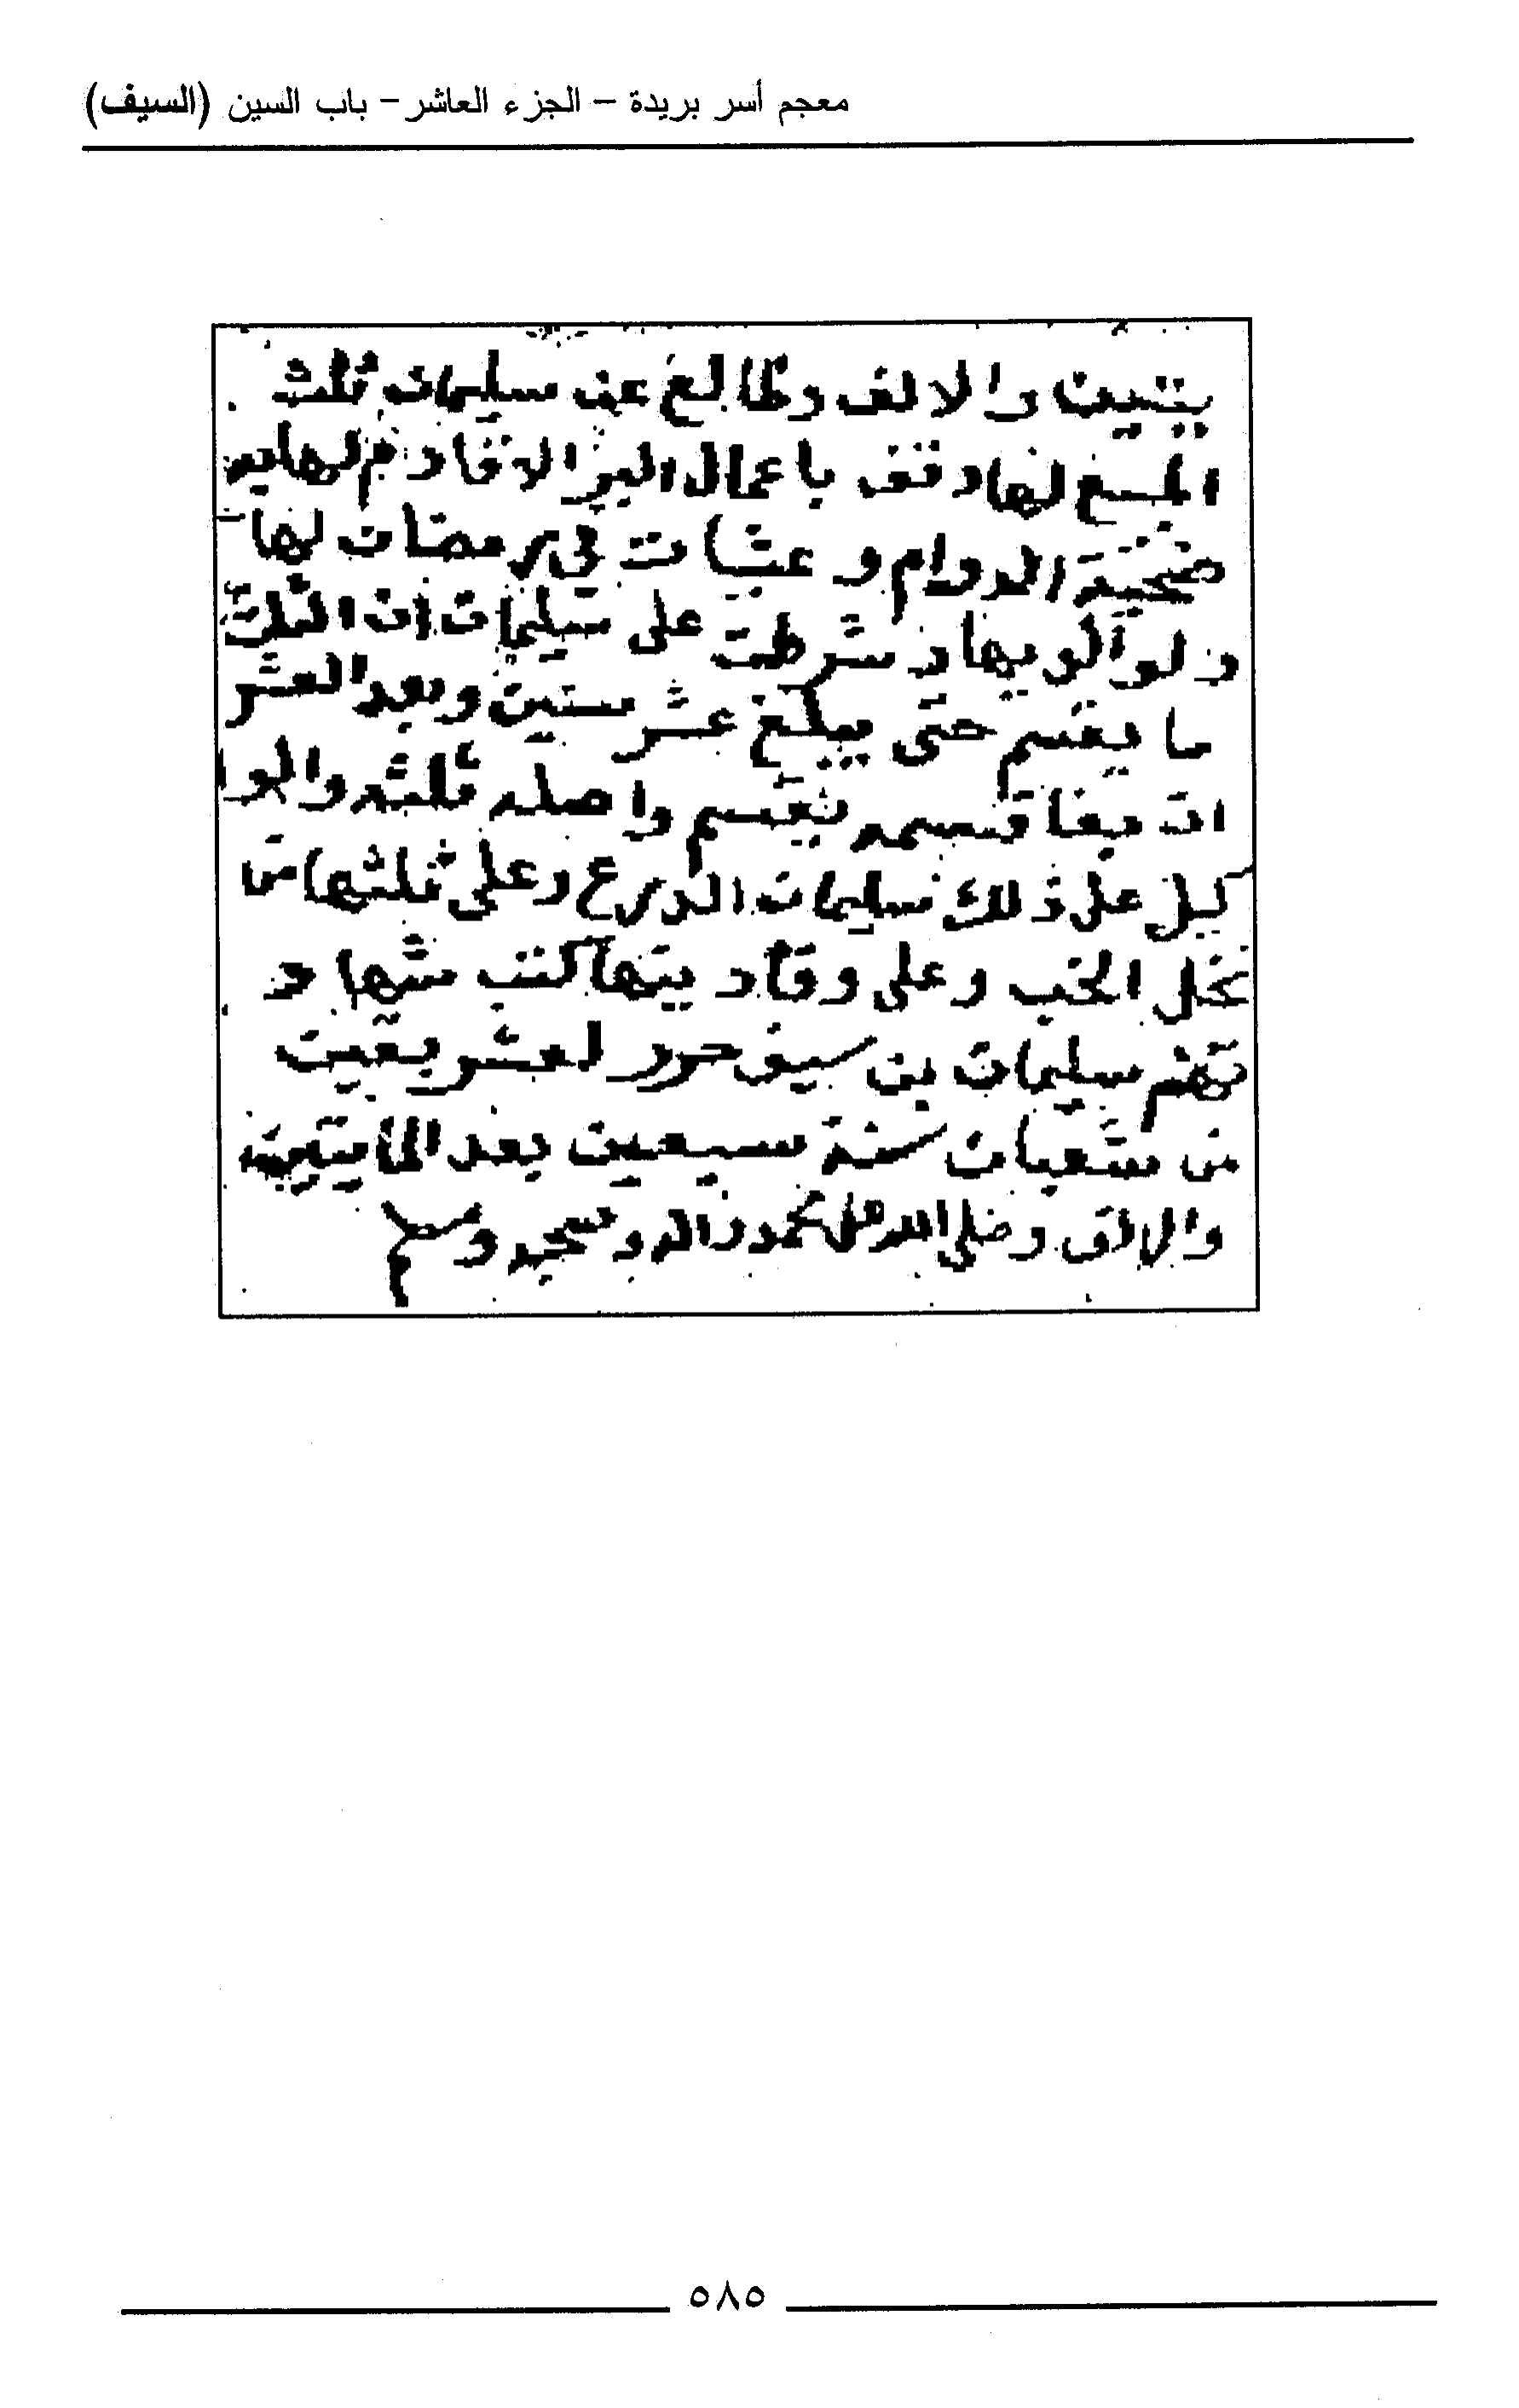 معجم أسر بريدة – الجزء العاشر – باب السين (السيف)
والالف وطالع عن سليمان ثلث
المبلغ لها وقف باعمال البر
ضحية الدوام وعشيات في رمضان لها
ولوالديها وشرطت على سليمان ان الثلث
ما يقسم حتى يبلغ عشر سنين وبعد العشر
قسمه يقسم واصله ثلثه
على ذلك سليمان وعلى ثلثها من
نخل الخب وعلى كتب شهاد
تهم سليمان بن سيف حرر لعشر بقين
من شعبان سنة سبعين بعد المايتين
والالف وصلى الله على محمد واله وصحبه وسلم
٥٨٥